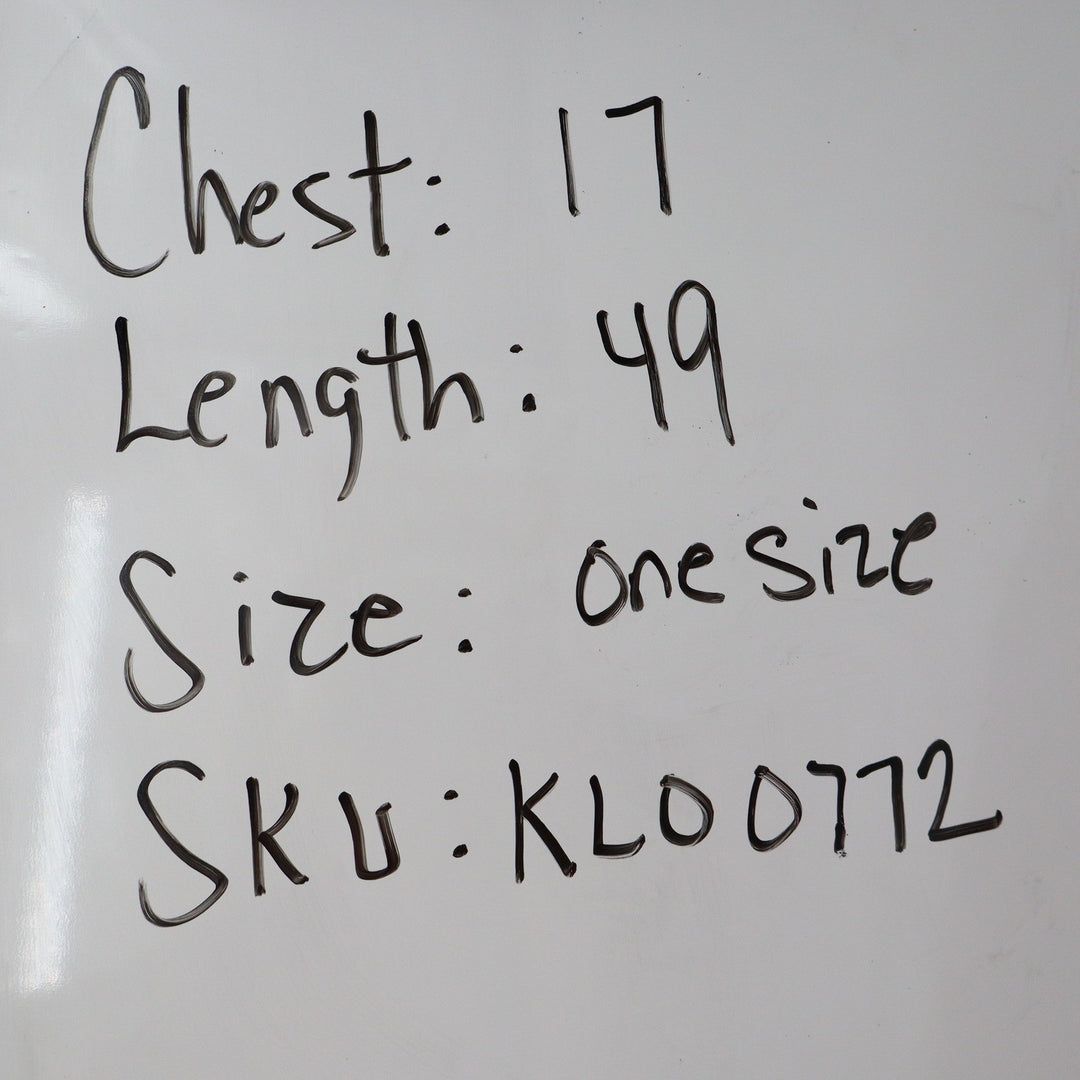 Chest: 17
Length: 49
Size: one size
SKU: KL00772